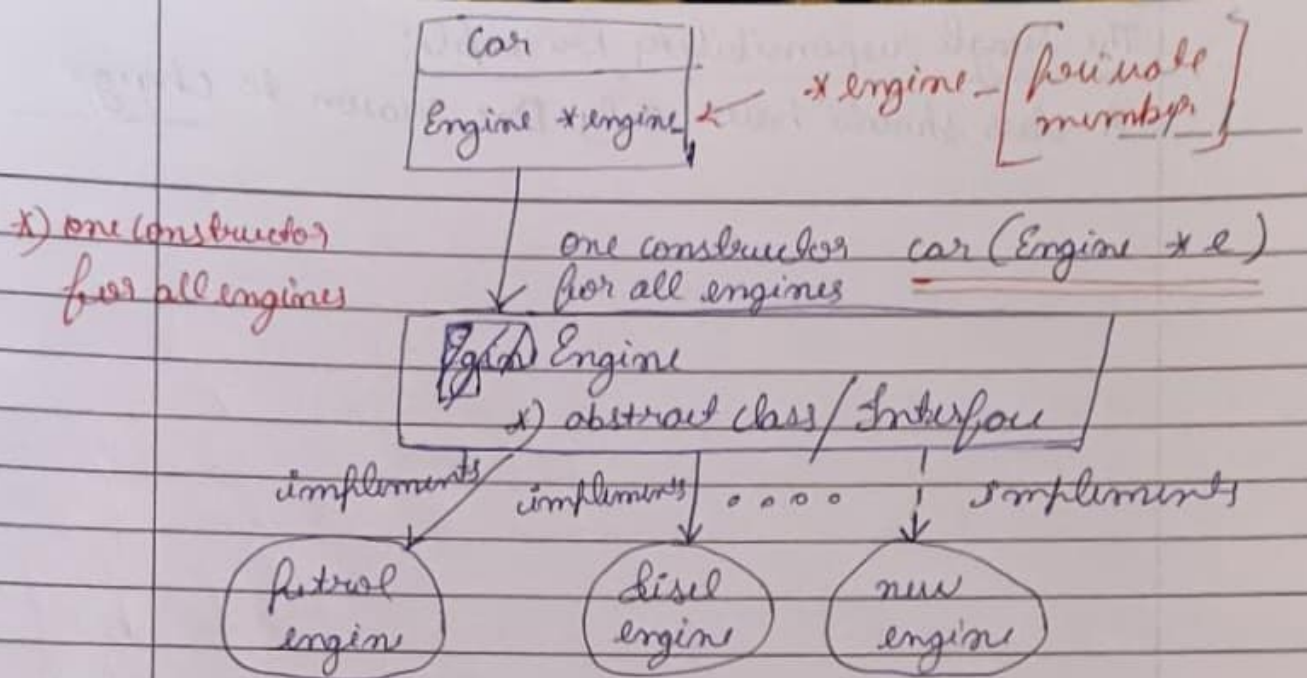 Car
Engine *engine
*engine - [private
member]
*) one constructor
for all engines
one constructor car (Engine * e)
for all engines
Engine
*) abstract class / Interface
implements implements . . . . implements
petrol
engin
disel
engine
new
engine